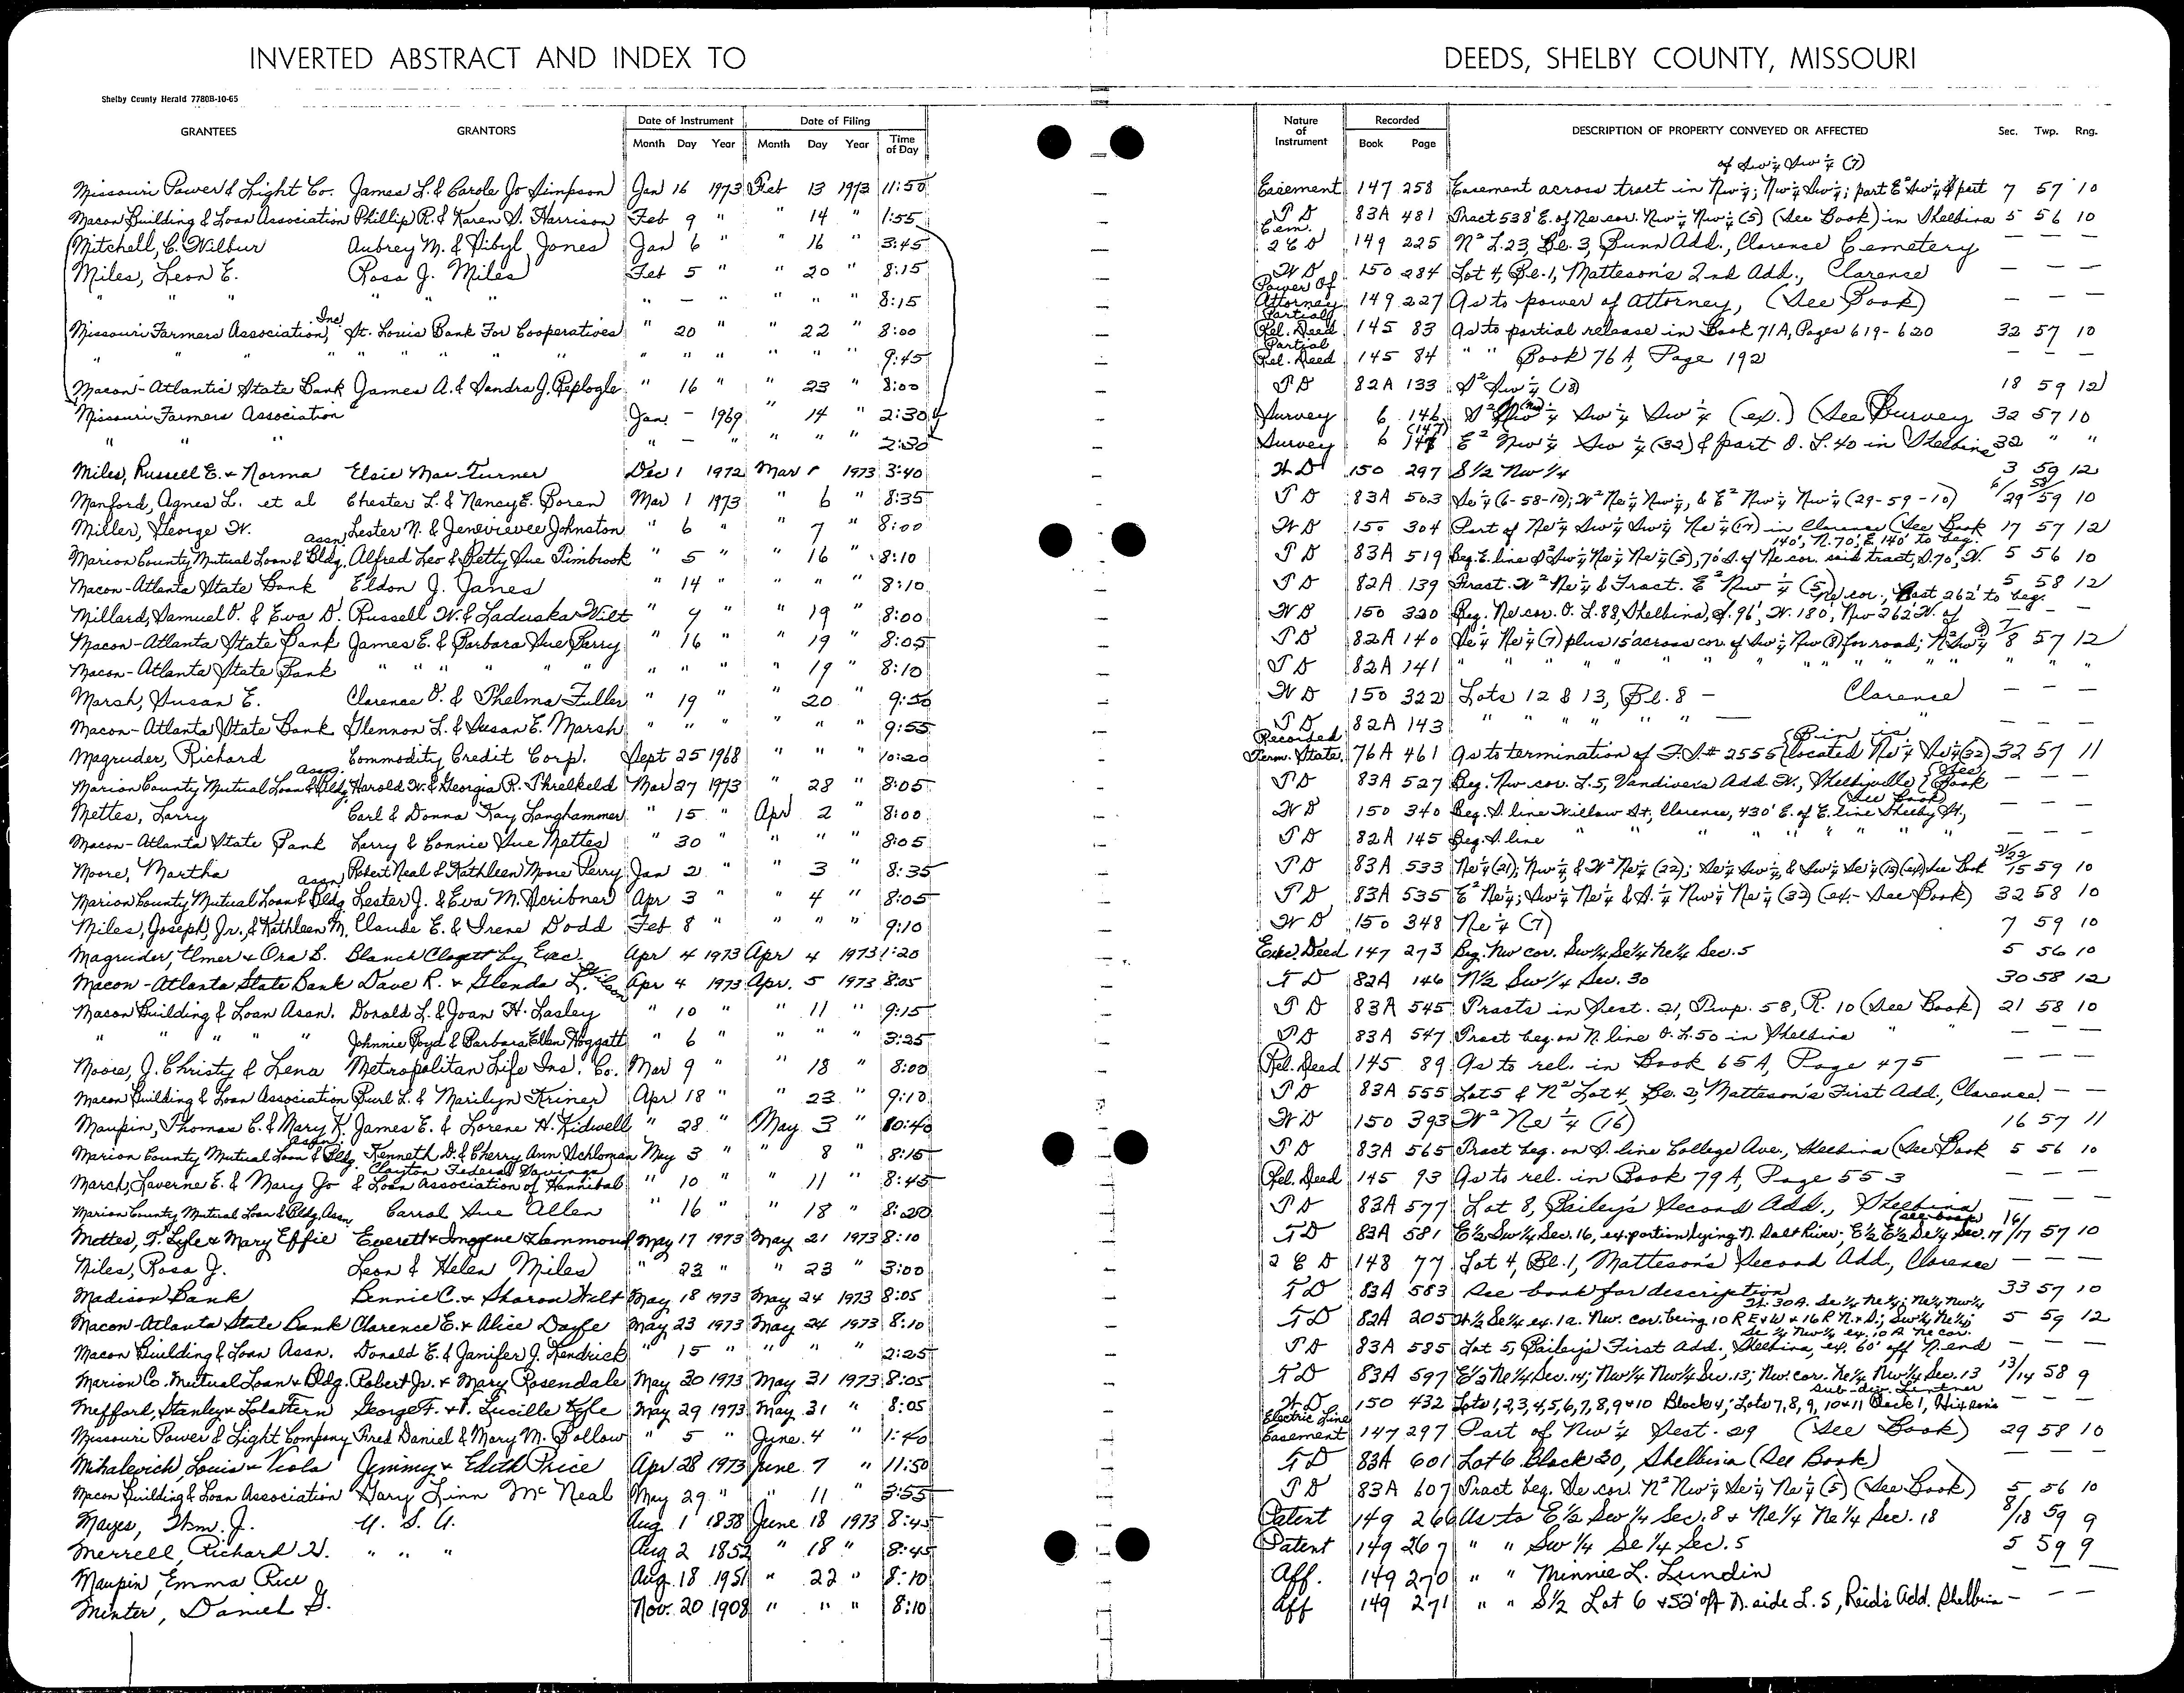 INVERTED ABSTRACT AND INDEX TO DEEDS, SHELBY COUNTY, MISSOURI
Shelby County Herald 7780B-10-65
GRANTEES GRANTORS Date of Instrument Month Day Year Date of Filing Month Day Year Time of Day Nature of Instrument Recorded Book Page DESCRIPTION OF PROPERTY CONVEYED OR AFFECTED Sec. Twp. Rng.
of Sw 1/4 Sw 1/4 (7)
Missouri Power & Light Co. James L. & Carole Jo Simpson Jan 16 1973 Feb 13 1973 11:50 Easement 147 258 Easement across tract in Nw 1/4; Nw 1/4 Sw 1/4; part E² Sw 1/4 & part 7 57 10
Macon Building & Loan Association Phillip R. & Karen S. Harrison Feb 9 " " 14 " 1:55 T D 83A 481 Tract 538' E. of Ne cor. Nw 1/4 Nw 1/4 (5) (See Book) in Shelbina 5 56 10
Mitchell, C. Wilbur Aubrey M. & Sibyl Jones Jan 6 " " 16 " 3:45 Cem. 2 C D 149 225 N² L.23, Bl. 3, Bunn Add., Clarence Cemetery — — —
Miles, Leon E. Rosa J. Miles Feb 5 " " 20 " 8:15 W D 150 284 Lot 4, Bl. 1, Matteson's 2nd Add., Clarence — — —
" " " " " " " — " " " " 8:15 Power Of Attorney 149 227 As to power of attorney, (See Book) — — —
Missouri Farmers Association, Inc. St. Louis Bank For Cooperatives " 20 " " 22 " 8:00 Partial Rel. Deed 145 83 As to partial release in Book 71A, Pages 619-620 32 57 10
" " " " " " " " " " " " " " " 9:45 Partial Rel. Deed 145 84 " " Book 76A, Page 192 — — —
Macon-Atlantic State Bank James A. & Sandra J. Replogle " 16 " " 23 " 8:00 T D 82A 133 S² Sw 1/4 (18) 18 59 12
Missouri Farmers Association Jan — 1969 " 14 " 2:30 Survey 6 146 S² Nw 1/4 Sw 1/4 Sw 1/4 (ex.) (See Survey 32 57 10
" " " " — " " " " 2:30 Survey 6 (147) E² Nw 1/4 Sw 1/4 (32) & part O. L. 40 in Shelbina 32 " "
Miles, Russell E. & Norma Elsie Mae Turner Dec 1 1972 Mar 1 1973 3:40 W D 150 297 S 1/2 Nw 1/4 3 59 12
Manford, Agnes L. et al Chester L. & Nancy E. Boren Mar 1 1973 " 6 " 8:35 T D 83A 503 Se 1/4 (6-58-10); W² Ne 1/4 Nw 1/4, & E² Nw 1/4 Nw 1/4 (29-59-10) 6/29 58/59 10
Miller, George W. Lester N. & Jenevievee Johnston " 6 " " 7 " 8:00 W D 150 304 Part of Ne 1/4 Sw 1/4 Sw 1/4 Ne 1/4 (17) in Clarence (See Book 17 57 12
140', N. 70', E. 140' to beg.
Marion County Mutual Loan & Bldg. Assn. Alfred Leo & Betty Sue Timbrook " 5 " " 16 " 8:10 T D 83A 519 Beg. E. line S² Sw 1/4 Ne 1/4 Ne 1/4 (5), 70' S. of Ne cor. said tract, S. 70', W. 5 56 10
Macon-Atlanta State Bank Eldon J. James " 14 " " " " 8:10 T D 82A 139 Tract. W² Ne 1/4 & Tract. E² Nw 1/4 (5) 5 58 12
Ne cor., East 262' to beg.
Millard, Samuel O. & Eva D. Russell W. & Laduska Wilt " 9 " " 19 " 8:00 W D 150 320 Beg. Ne cor. O. L. 88, Shelbina, S. 96', W. 180', Nw 262' W. of — — —
Macon-Atlanta State Bank James E. & Barbara Sue Perry " 16 " " 19 " 8:05 T D 82A 140 Se 1/4 Ne 1/4 (7) plus 15' across cor. of Sw 1/4 Nw (8) for road; N² Sw 1/4 (8) 7/8 57 12
Macon-Atlanta State Bank " " " " " " " " " 19 " 8:10 T D 82A 141 " " " " " " " " " "
Marsh, Susan E. Clarence O. & Thelma Fuller " 19 " " 20 " 9:50 W D 150 322 Lots 12 & 13, Bl. 8 — Clarence — — —
Macon-Atlanta State Bank Glennon L. & Susan E. Marsh " " " " " " 9:55 T D 82A 143 " " " " " " — " — — —
Magruder, Richard Commodity Credit Corp. Sept 25 1968 " " " 10:20 Recorded Term. State. 76A 461 As to termination of F.S.# 2555 (Bin is located Ne 1/4 Se 1/4 (32) 32 57 11
Marion County Mutual Loan & Bldg. Assn. Harold W. & Georgia R. Threlkeld Mar 27 1973 " 28 " 8:05 T D 83A 527 Beg. Nw cor. L. 5, Vandiver's Add. W., Shelbyville (See Book — — —
Mettes, Larry Carl & Donna Kay Langhammer " 15 " Apr 2 " 8:00 W D 150 340 Beg. S. line Willow St., Clarence, 430' E. of E. line Shelby St., (See Book) — — —
Macon-Atlanta State Bank Larry & Connie Sue Mettes " 30 " " " " 8:05 T D 82A 145 Beg. S. line " " " " " " " " — — —
Moore, Martha Robert Neal & Kathleen Moore Perry Jan 2 " " 3 " 8:35 T D 83A 533 Ne 1/4 (21); Nw 1/4 & W² Ne 1/4 (22); Se 1/4 Sw 1/4 & Sw 1/4 Se 1/4 (15) (ex) See Book 21/22/15 59 10
Marion County Mutual Loan & Bldg. Assn. Lester J. & Eva M. Scribner Apr 3 " " 4 " 8:05 T D 83A 535 E² Ne 1/4; Sw 1/4 Ne 1/4 & S. 1/4 Nw 1/4 Ne 1/4 (32) (ex- See Book) 32 58 10
Miles, Joseph, Jr., & Kathleen M. Claude E. & Irene Dodd Feb 8 " " " " 9:10 W D 150 348 Ne 1/4 (7) 7 59 10
Magruder, Elmer & Ora B. Blanch Clogett by Exec. Apr 4 1973 Apr 4 1973 1:20 Exec. Deed 147 273 Beg. Nw cor. Sw 1/4 Se 1/4 Ne 1/4 Sec. 5 5 56 10
Macon-Atlanta State Bank Dave R. & Glenda L. Apr 4 1973 Apr. 5 1973 8:05 T D 82A 146 N 1/2 Sw 1/4 Sec. 30 30 58 12
Macon Building & Loan Assn. Donald L. & Joan H. Lasley " 10 " " 11 " 9:15 T D 83A 545 Tracts in Sect. 21, Twp. 58, R. 10 (See Book) 21 58 10
" " " " " Johnnie Boyd & Barbara Ellen Hoggatt " 6 " " " " 3:25 T D 83A 547 Tract beg. on N. line O. L. 50 in Shelbina — — —
Moore, J. Christy & Lena Metropolitan Life Ins. Co. Mar 9 " " 18 " 8:00 Rel. Deed 145 89 As to rel. in Book 65A, Page 475 — — —
Macon Building & Loan Association Burl L. & Marilyn Kriner Apr 18 " " 23 " 9:10 T D 83A 555 Lot 5 & N² Lot 4, Bl. 2, Matteson's First Add., Clarence — —
Maupin, Thomas C. & Mary K. James E. & Lorene H. Kidwell " 28 " May 3 " 10:40 W D 150 393 W² Ne 1/4 (16) 16 57 11
Marion County Mutual Loan & Bldg. Assn. Kenneth D. & Cherry Ann Schloman May 3 " " 8 " 8:15 T D 83A 565 Tract beg. on S. line College Ave., Shelbina (See Book 5 56 10
March, Laverne E. & Mary Jo Clayton Federal Savings & Loan Association of Hannibal " 10 " " 11 " 8:45 Rel. Deed 145 93 As to rel. in Book 79A, Page 553 — — —
Marion County Mutual Loan & Bldg. Assn Carrol Sue Allen " 16 " " 18 " 8:20 T D 83A 577 Lot 8, Bailey's Second Add., Shelbina — — —
Mettes, T. Lyle & Mary Effie Everett & Imogene Hammond May 17 1973 May 21 1973 8:10 T D 83A 581 E 1/2 Sw 1/4 Sec. 16, ex. portion lying N. Salt River; E 1/2 E 1/2 Se 1/4 Sec. 17 (see book) 16/17 57 10
Miles, Rosa J. Leon & Helen Miles " 23 " " 23 " 3:00 2 C D 148 77 Lot 4, Bl. 1, Matteson's Second Add, Clarence — — —
Madison Bank Bennie C. & Sharon Wilt May 18 1973 May 24 1973 8:05 T D 83A 583 See book for description 33 57 10
W. 30 A. Se 1/4 Ne 1/4; Ne 1/4 Nw 1/4
Macon-Atlanta State Bank Clarence E. & Alice Doyle May 23 1973 May 24 1973 8:10 T D 82A 205 W 1/2 Se 1/4 ex. 1a. Nw. cor. being 10 R E & W & 16 R N. & S.; Sw 1/4 Ne 1/4; 5 59 12
Se 1/4 Nw 1/4 ex. 10 A. Ne cor.
Macon Building & Loan Assn. Donald E. & Janifer J. Kendrick " 15 " " " " 2:25 T D 83A 585 Lot 5, Bailey's First Add., Shelbina, ex. 60' off N. end — — —
Marion Co. Mutual Loan & Bldg. Robert Jr. & Mary Rosendale May 30 1973 May 31 1973 8:05 T D 83A 597 E 1/2 Ne 1/4 Sec. 14; Nw 1/4 Nw 1/4 Sec. 13; Nw. cor. Ne 1/4 Nw 1/4 Sec. 13 13/14 58 9
sub-div. Lentner
Mefford, Stanley & Lola Fern George F. & V. Lucille Kyle May 29 1973 May 31 " 8:05 W. D. 150 432 Lots 1,2,3,4,5,6,7,8,9 & 10 Block 4; Lots 7, 8, 9, 10 & 11 Block 1, Hixson's — — —
Missouri Power & Light Company Fred Daniel & Mary M. Bollow " 5 " June. 4 " 1:40 Electric Line Easement 147 297 Part of Nw 1/4 Sect. 29 (See Book) 29 58 10
Mihalevich, Louis & Viola Jimmy & Edith Price Apr 28 1973 June 7 " 11:50 T D 83A 601 Lot 6 Block 30, Shelbina (See Book)
Macon Building & Loan Association Gary Linn McNeal May 29 " " 11 " 3:55 T D 83A 607 Tract beg. Se cor. N² Nw 1/4 Se 1/4 Ne 1/4 (5) (See Book) 5 56 10
Mayes, Wm. J. U. S. A. Aug 1 1838 June 18 1973 8:45 Patent 149 266 As to E 1/2 Sw 1/4 Sec. 8 & Ne 1/4 Ne 1/4 Sec. 18 8/18 59 9
Merrell, Richard H. " " " Aug 2 1852 " 18 " 8:45 Patent 149 267 " " Sw 1/4 Se 1/4 Sec. 5 5 59 9
Maupin, Emma Rice Aug. 18 1951 " 22 " 8:10 Aff. 149 270 " " Minnie L. Lundin — — —
Minter, Daniel G. Nov. 20 1908 " " " 8:10 Aff 149 271 " " S 1/2 Lot 6 & 52' off N. side L. 5, Reid's Add. Shelbina — — —